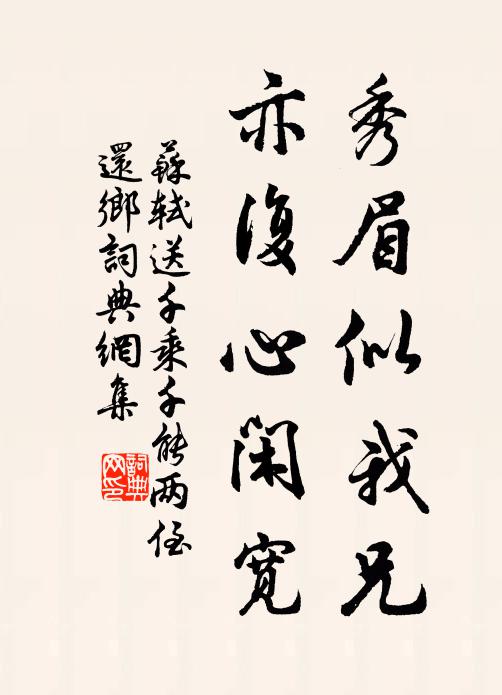 秀眉似我兄
亦復心閑寬
蘇軾送千乘千能兩侄
還鄉詞典網集
詞典网印